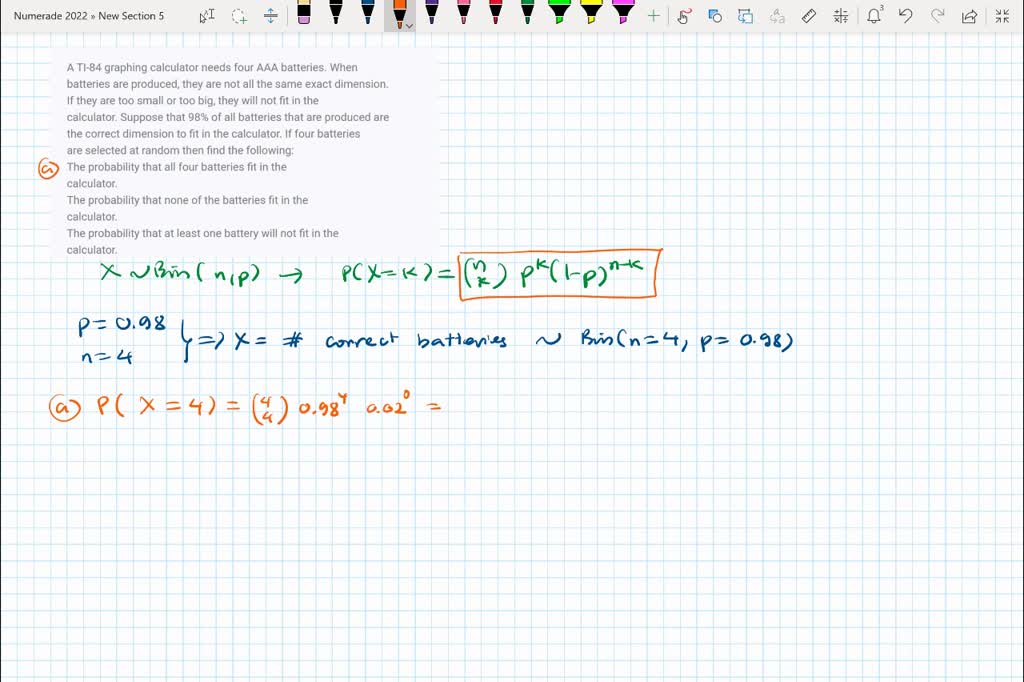 Numerade 2022 » New Section 5
3
A TI-84 graphing calculator needs four AAA batteries. When
batteries are produced, they are not all the same exact dimension.
If they are too small or too big, they will not fit in the
calculator. Suppose that 98% of all batteries that are produced are
the correct dimension to fit in the calculator. If four batteries
are selected at random then find the following:
(a) The probability that all four batteries fit in the
calculator.
The probability that none of the batteries fit in the
calculator.
The probability that at least one battery will not fit in the
calculator.
X ~ Bin(n,p) → P(X=k) = (n k) p^k (1-p)^n-k
p = 0.98
n = 4
} => X = # correct batteries ~ Bin(n=4, p=0.98)
(a) P(X=4) = (4 4) 0.98^4 0.02^0 =